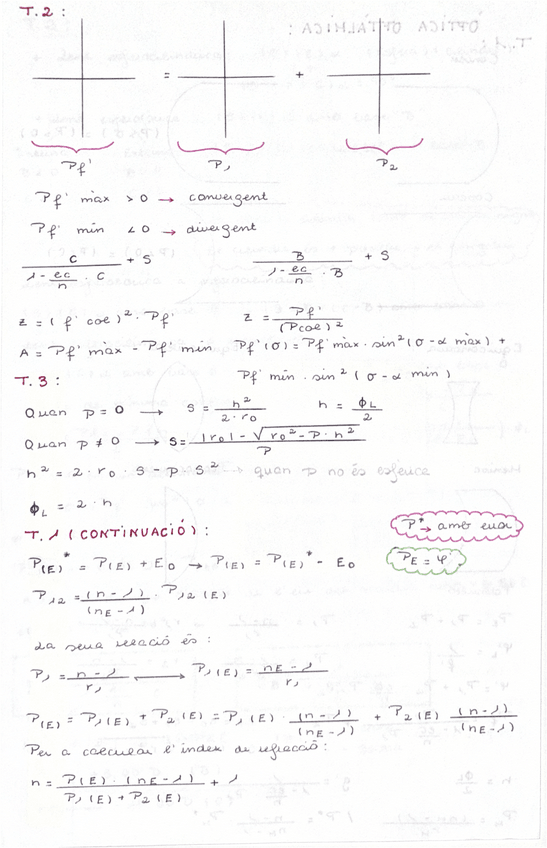 T.2:
= +
Pf' P₁ P₂
Pf' màx > 0 → convergent
Pf' min < 0 → divergent
C / (1 - ec/n · C) + S    B / (1 - ec/n · B) + S
z = (f' coe)² · Pf'    z = Pf' / (Pcoe)²
A = Pf' màx - Pf' min    Pf'(σ) = Pf' màx · sin²(σ - α màx) +
Pf' min · sin²(σ - α min)
T.3:
Quan p = 0 → s = h² / 2·r₀    h = ϕL / 2
Quan p ≠ 0 → s = (|r₀| - √(r₀² - p·h²)) / p
h² = 2 · r₀ · s - p · s² → quan p no és esfèrica
ϕL = 2 · h
T.1 (CONTINUACIÓ):
P* → amb euor
P(E)* = P(E) + E₀ → P(E) = P(E)* - E₀
PE = φ'
P₁₂ = (n-1) / (nE-1) · P₁₂(E)
La seua relació és:
P₁ = n-1 / r₁ ⟷ P₁(E) = nE-1 / r₁
P(E) = P₁(E) + P₂(E) = P₁(E) · (n-1) / (nE-1) + P₂(E) (n-1) / (nE-1)
Per a calcular l'índex de refracció:
n = P(E) · (nE-1) / P₁(E) + P₂(E) + 1